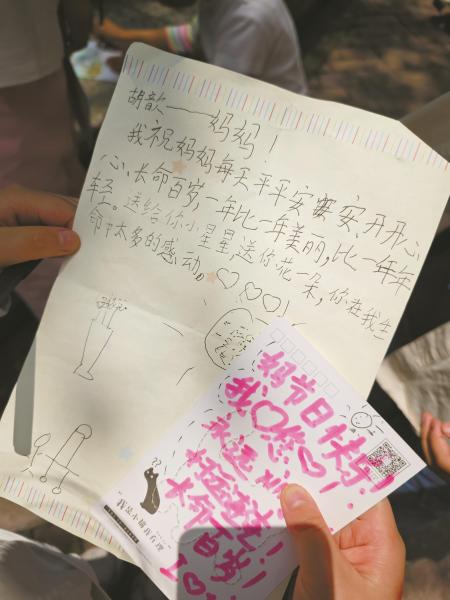 胡歆——妈妈！
我祝妈妈每天平平安安、开开心
心、长命百岁，一年比一年美丽，比一年年
轻。送给你小星星，送你花一朵，你在我生
命中太多的感动。
妈节日快乐！
我♡您♡！
永远
长命百岁！
I♡